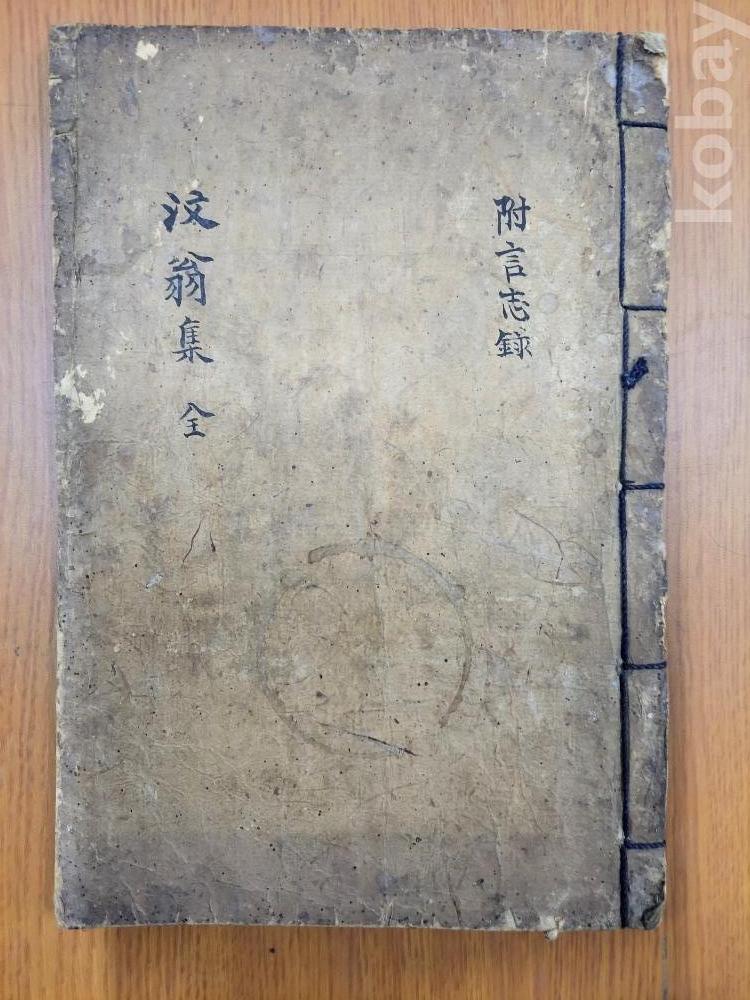 附言志錄
汶翁集 全
kobay